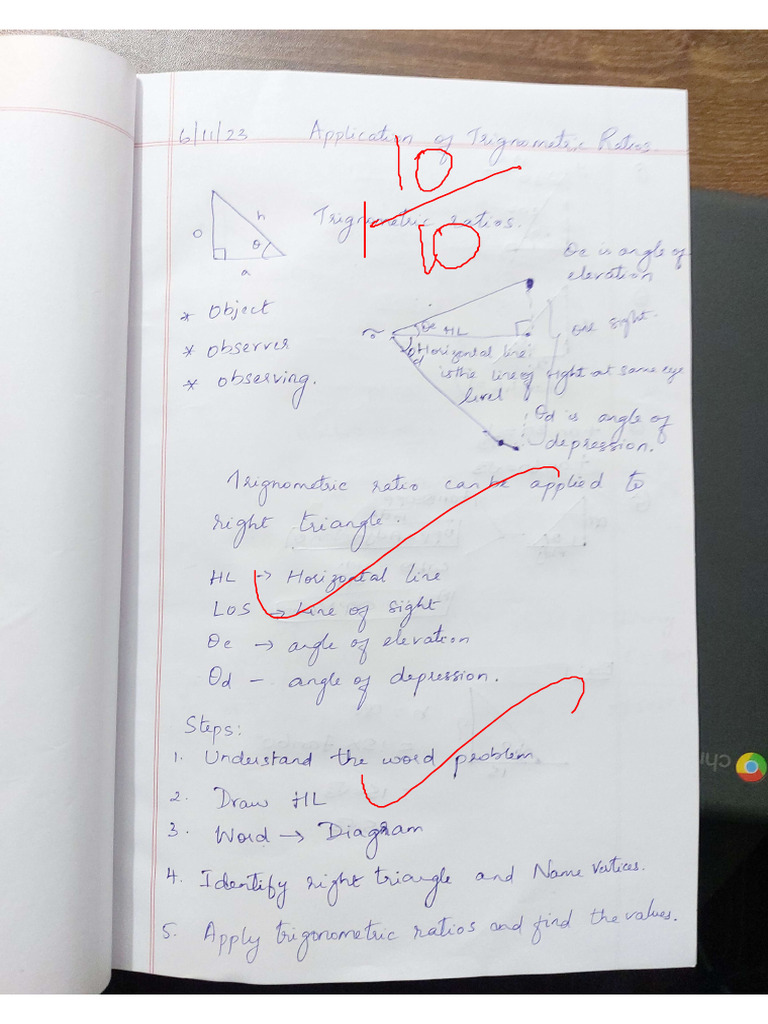 6/11/23 Application of Trignometric Ratios.
10
10
Trignometric ratios.
o
h
θ
a
θe is angle of
elevation
* Object
* observer
* observing.
θe HL
one sight.
θd
Horizontal line:
is the line of sight at same eye
level
θd is angle of
depression.
Trignometric ratio can be applied to
right triangle.
HL → Horizontal line
LOS → Line of sight
θe → angle of elevation
θd - angle of depression.
Steps:
1. Understand the word problem
2. Draw HL
3. Word → Diagram
4. Identify right triangle and Name vertices.
5. Apply trigonometric ratios and find the values.
chr